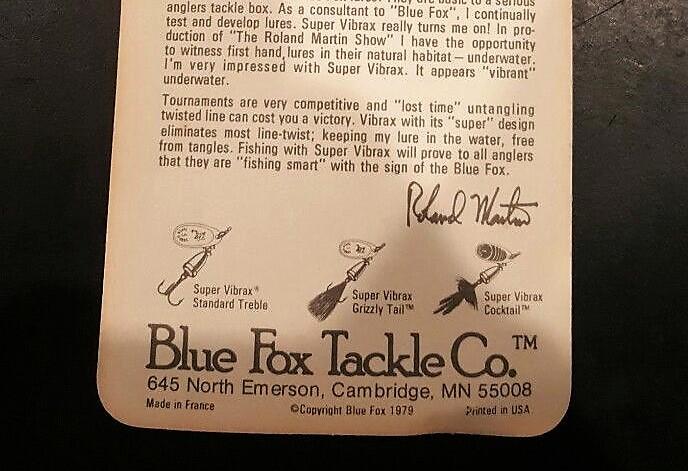 anglers tackle box. As a consultant to "Blue Fox", I continually
test and develop lures. Super Vibrax really turns me on! In pro-
duction of "The Roland Martin Show" I have the opportunity
to witness first hand lures in their natural habitat — underwater.
I'm very impressed with Super Vibrax. It appears "vibrant"
underwater.
Tournaments are very competitive and "lost time" untangling
twisted line can cost you a victory. Vibrax with its "super" design
eliminates most line-twist; keeping my lure in the water, free
from tangles. Fishing with Super Vibrax will prove to all anglers
that they are "fishing smart" with the sign of the Blue Fox.
Roland Martin
Super Vibrax®
Standard Treble
Super Vibrax
Grizzly Tail™
Super Vibrax
Cocktail™
Blue Fox Tackle Co.™
645 North Emerson, Cambridge, MN 55008
Made in France ©Copyright Blue Fox 1979 Printed in USA